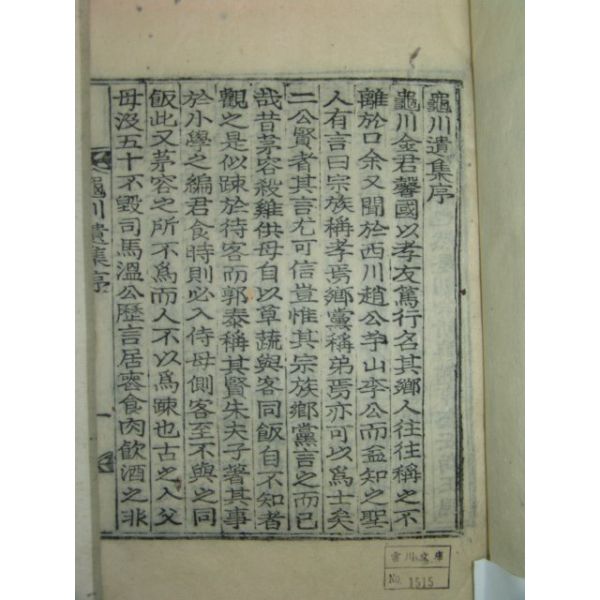 龜川遺集序
龜川金君馨國以孝友篤行名其鄉人往往稱之不
離於口余又聞於西川趙公茅山李公而益知之聖
人有言曰宗族稱孝焉鄉黨稱弟焉亦可以爲士矣
二公賢者其言尤可信豈惟其宗族鄉黨言之而已
哉昔茅容殺雞供母自以草蔬與客同飯自不知者
觀之是似踈於待客而郭泰稱其賢朱夫子著其事
於小學之編君食時則必入侍母側客至不與之同
飯此又茅容之所不爲而人不以爲踈也古之人父
母沒五十不毀司馬溫公歷言居喪食肉飮酒之非
龜川遺集序
一
雲川文庫
No. 1515